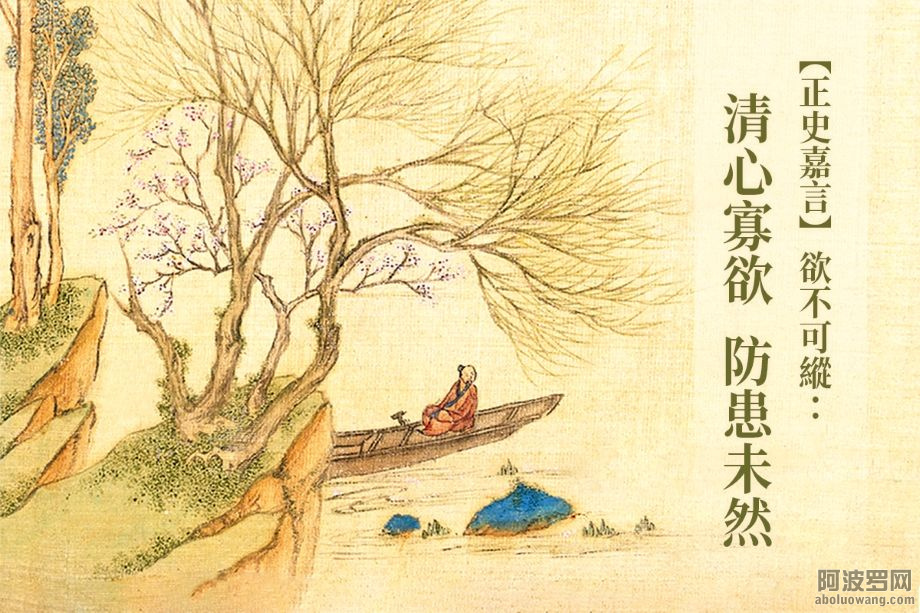 【正史嘉言】欲不可縱：
清心寡欲 防患未然
阿波罗网
aboluowang.com